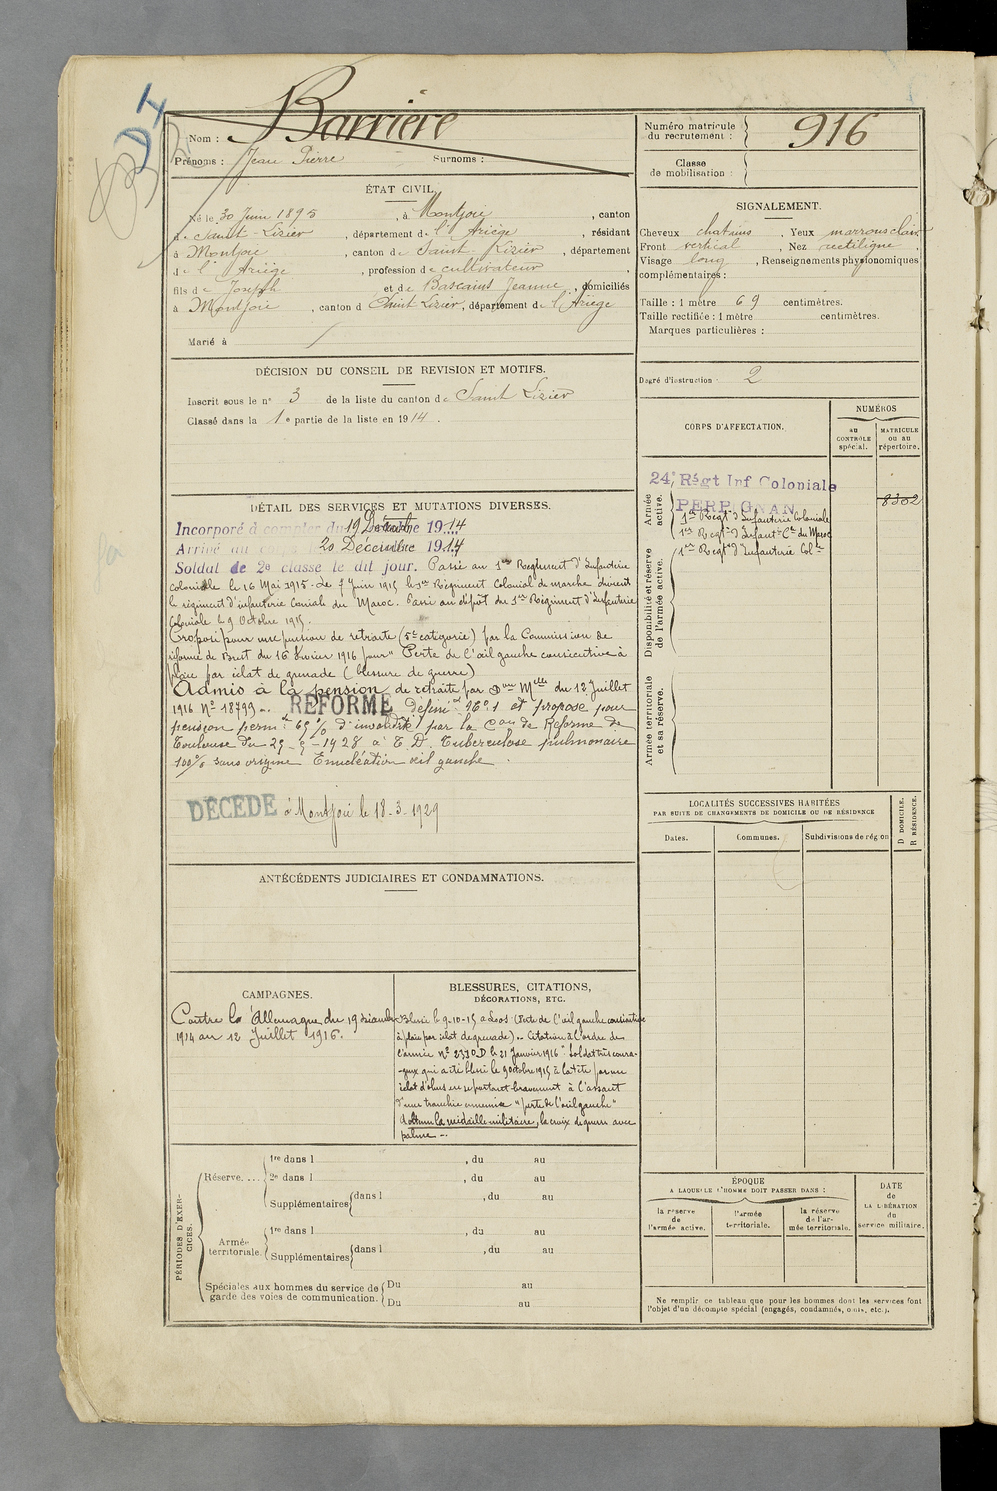 Nom : Barrière
Prénoms : Jean Pierre Surnoms :
ÉTAT CIVIL
Né le 30 Juin 1895, à Montjoie, canton
de Saint-Lizier, département de l'Ariège, résidant
à Montjoie, canton de Saint Lizier, département
de l'Ariège, profession de cultivateur,
fils de Joseph et de Bascains Jeanne, domiciliés
à Montjoie, canton de Saint Lizier, département de l'Ariège
Marié à
DÉCISION DU CONSEIL DE REVISION ET MOTIFS.
Inscrit sous le n° 3 de la liste du canton de Saint Lizier
Classé dans la 1e partie de la liste en 1914.
DÉTAIL DES SERVICES ET MUTATIONS DIVERSES.
Incorporé à compter du 19 Décembre 1914
Arrivé au corps 20 Décembre 1914
Soldat de 2e classe le dit jour. Passé au 1er Régiment d'Infanterie
Coloniale le 16 Mai 1915. Le 7 Juin 1915 le 1er Régiment Colonial de marche devient
le régiment d'infanterie Conial du Maroc. Passé au dépôt du 1er Régiment d'Infanterie
Coloniale le 9 Octobre 1915.
Proposé pour une pension de retraite (5e catégorie) par la Commission de
réforme de Brest du 16 Février 1916 pour "Perte de l'œil gauche consécutive à
plaie par éclat de grenade (blessure de guerre)
Admis à la pension de retraite par Don Melle du 12 Juillet
1916 N° 18799.. RÉFORMÉ défini.t n°1 et proposé pour
pension perm.te 65% d'invalidité par la Con de Réforme de
Toulouse du 25-5-1928 à T. D. Tuberculose pulmonaire
100% sans origine Enucléation œil gauche.
DÉCÉDÉ à Montjoie le 18-3-1929
ANTÉCÉDENTS JUDICIAIRES ET CONDAMNATIONS.
CAMPAGNES.
Contre l'Allemagne du 19 décembre
1914 au 12 Juillet 1916.
BLESSURES, CITATIONS,
DÉCORATIONS, ETC.
Blessé le 9-10-15 à Loos (Perte de l'œil gauche consécutive
à plaie par éclat de grenade).. Citation à l'ordre de
l'armée N° 2330 D le 21 Janvier 1916 "Soldat très coura-
-geux qui a été blessé le 9 octobre 1915 à la tête par un
éclat d'obus en se portant bravement à l'assaut
d'une tranchée ennemie "perte de l'œil gauche"
Obtenu la médaille militaire, la croix de guerre avec
palme -.
PÉRIODES D'EXER-
CICES.
Réserve.... 1re dans l , du au
2e dans l , du au
Supplémentaires dans l , du au
Armée
territoriale. 1re dans l , du au
Supplémentaires dans l , du au
Spéciales aux hommes du service de
garde des voies de communication. Du au
Du au
Numéro matricule
du recrutement : 916
Classe
de mobilisation :
SIGNALEMENT.
Cheveux chatains, Yeux marrons clairs
Front vertical, Nez rectiligne,
Visage long, Renseignements physionomiques
complémentaires :
Taille : 1 mètre 69 centimètres.
Taille rectifiée : 1 mètre centimètres.
Marques particulières :
Degré d'instruction : 2
CORPS D'AFFECTATION.
NUMÉROS
au
CONTRÔLE
spécial.
MATRICULE
ou au
répertoire.
Armée
active.
24e Régt Inf Coloniale 8302
PERPIGNAN
1er Regt d'Infanterie Coloniale
1er Regt d'Infant. Ce du Maroc
1er Regt d'Infanterie Colle
Disponibilité et réserve
de l'armée active.
Armée territoriale
et sa réserve.
LOCALITÉS SUCCESSIVES HABITÉES
PAR SUITE DE CHANGEMENTS DE DOMICILE OU DE RÉSIDENCE
Dates. Communes. Subdivisions de région
D DOMICILE.
R RÉSIDENCE.
ÉPOQUE
A LAQUELLE L'HOMME DOIT PASSER DANS :
la réserve
de
l'armée active.
l'armée
territoriale.
la réserve
de l'ar-
mée territoriale.
DATE
de
LA LIBÉRATION
du
service militaire.
Ne remplir ce tableau que pour les hommes dont les services font
l'objet d'un décompte spécial (engagés, condamnés, omis, etc.).